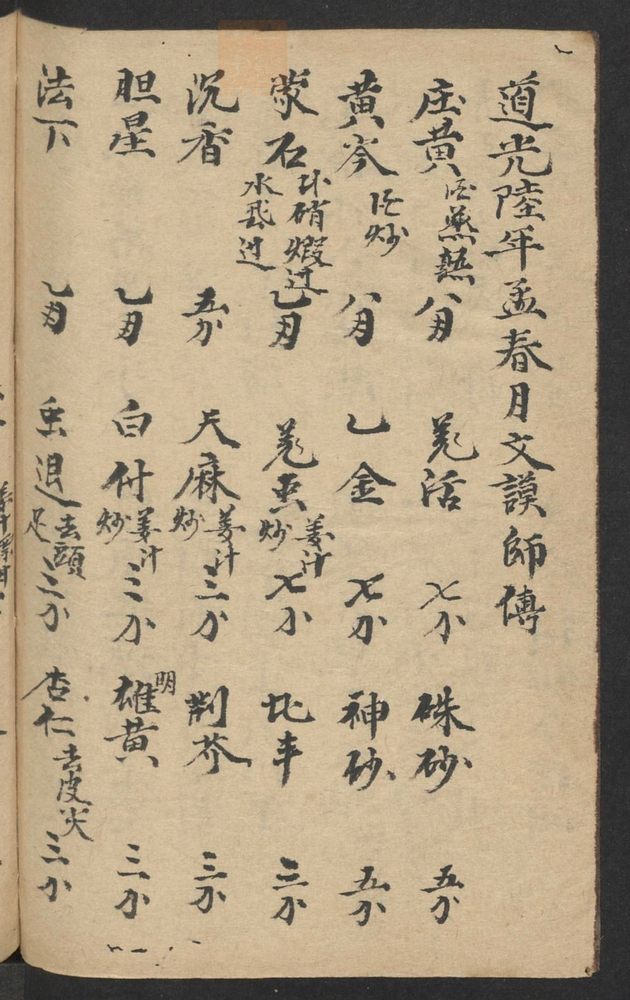 道光陸年孟春月文謨師傳
庄黄 酒蒸熟 八分 羌活 七分 硃砂 五分
黄岑 酒炒 八分 乙金 七分 神砂 五分
蒙石 硝煅过 水飛过 乙月 姜虫 姜汁炒 七分 三分
沉香 五分 天麻 姜汁炒 三分 荆芥 三分
胆星 乙月 白付 姜汁炒 三分 明雄黄 三分
法下 乙月 虫退 去頭足 三分 杏仁 去皮尖 三分